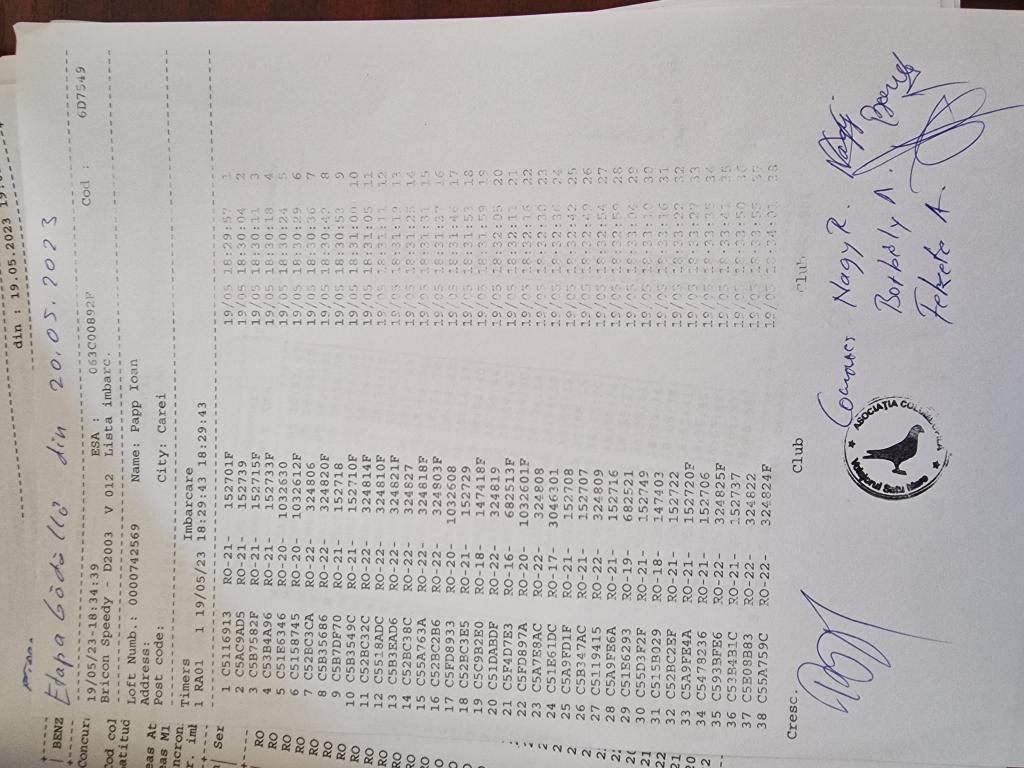 din : 19.05.2023
Etapa Gödöllő din 20.05.2023
19/05/23-18:34:39 ESA : 063C00892F Cod : 6D7549
Bricon Speedy - D2003 V 012 Lista imbarc.
Loft Numb.: 0000742569 Name: Papp Ioan
Address:
Post code: City: Carei
Timers Imbarcare
1 RA01 1 19/05/23 18:29:43 18:29:43
1 C5116913 RO-21- 152701F 19/05 18:29:57 1
2 C5AC9AD5 RO-21- 152739 19/05 18:30:04 2
3 C5B7582F RO-21- 152715F 19/05 18:30:11 3
4 C53B4A96 RO-21- 152733F 19/05 18:30:18 4
5 C51E6346 RO-20- 1032630 19/05 18:30:24 5
6 C515B745 RO-20- 1032612F 19/05 18:30:29 6
7 C52BC3CA RO-22- 324806 19/05 18:30:36 7
8 C5B35686 RO-22- 324820F 19/05 18:30:42 8
9 C5B7DF70 RO-21- 152718 19/05 18:30:53 9
10 C5B3549C RO-21- 152710F 19/05 18:31:00 10
11 C52BC32C RO-22- 324814F 19/05 18:31:05 11
12 C5518ADC RO-22- 324810F 19/05 18:31:13 12
13 C5B3EAD6 RO-22- 324821F 19/05 18:31:19 13
14 C52BC38C RO-22- 324827 19/05 18:31:25 14
15 C5A5A763A RO-22- 324818F 19/05 18:31:31 15
16 C52BC2B6 RO-22- 324803F 19/05 18:31:37 16
17 C5FD8933 RO-20- 1032608 19/05 18:31:46 17
18 C52BC3E5 RO-21- 152729 19/05 18:31:53 18
19 C5C9B2E0 RO-18- 147418F 19/05 18:31:59 19
20 C51DABDF RO-22- 324819 19/05 18:32:05 20
21 C5F4D7E3 RO-16- 682513F 19/05 18:32:11 21
22 C5FD897A RO-20- 1032601F 19/05 18:32:16 22
23 C5A7E8AC RO-22- 324808 19/05 18:32:30 23
24 C51E61DC RO-17- 3046301 19/05 18:32:36 24
25 C5A9FD1F RO-21- 152708 19/05 18:32:42 25
26 C5B347AC RO-21- 152707 19/05 18:32:49 26
27 C5119415 RO-22- 324809 19/05 18:32:54 27
28 C5A9FE6A RO-21- 152716 19/05 18:32:59 28
29 C51E6293 RO-19- 682521 19/05 18:33:04 29
30 C55D3F2F RO-21- 152749 19/05 18:33:10 30
31 C515B029 RO-18- 147403 19/05 18:33:16 31
32 C52BC2EF RO-21- 152722 19/05 18:33:22 32
33 C5A9FE4A RO-21- 152720F 19/05 18:33:27 33
34 C5478236 RO-21- 152706 19/05 18:33:35
35 C593BFE6 RO-22- 324825F 19/05
36 C53B4B1C RO-21- 152737 19/05 18:33:50 36
37 C5B08B83 RO-22- 324822 19/05
38 C55A759C RO-22- 324824F 19/05 38
Cresc. Club Club
ASOCIAȚIA COLUMBOFILĂ
Nagy R.
Borbély A.
Fekete A.